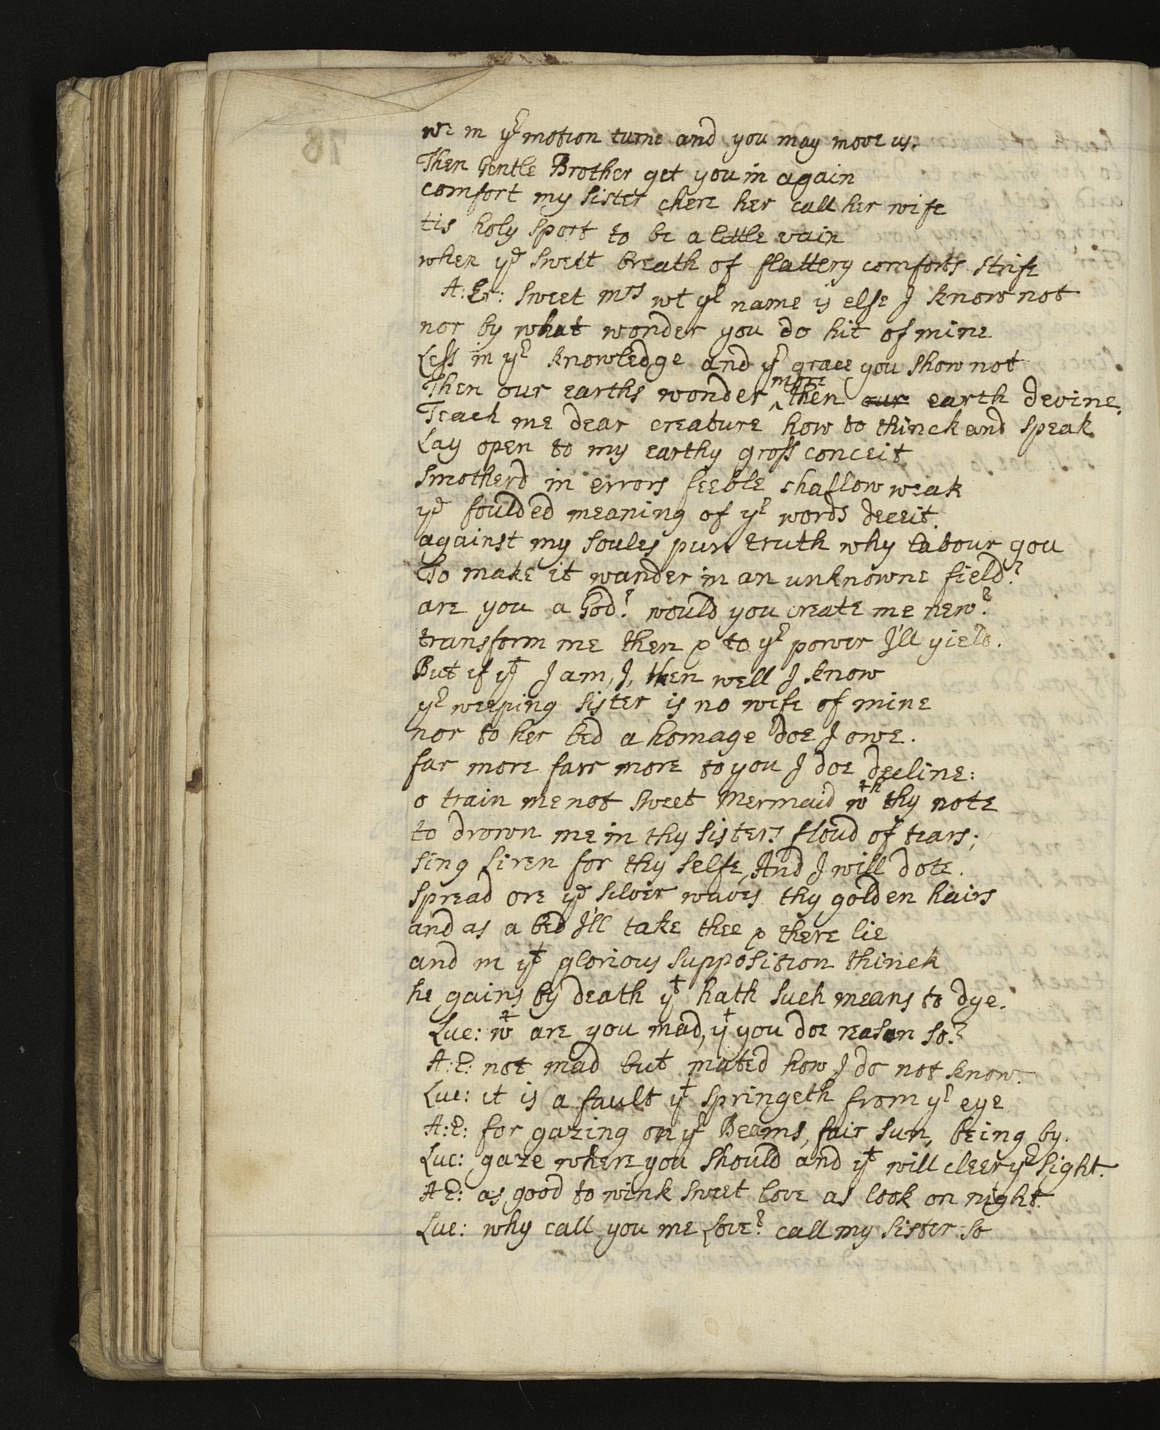 we in yr motion turne and you may move us.
Then Gentle Brother get you in again
comfort my sister chere her call her wife
tis holy sport to be a little vain
when ye sweet breath of flattery comforts strife
A: Er: sweet mrs wt yr name is else I know not
nor by what wonder you do hit of mine
Less in yr knowledge and yr grace you show not
more
Then our earths wonder ^ then our earth devine.
Teach me dear creature how to thinck and speak
Lay open to my earthy gross conceit
smotherd in errors feeble shallow weak
ye foulded meaning of yr words deceit.
against my soules pure truth why labour you
To make it wander in an unknowne field?
are you a God? would you create me new?
transform me then & to yr power I'll yield.
But if yt I am, I, then well I know
yr weeping sister is no wife of mine
nor to her bed a homage doe I owe.
far more farr more to you I doe decline:
o train me not sweet Mermaid wth thy note
to drown me in thy sisters floud of tears;
sing siren for thy selfe, And I will dote.
spread ore ye silver waves thy golden hairs
and as a bed I'll take thee & there lie
and in yt glorious supposition thinck
he gains by death yt hath such means to dye.
Luc: wt are you mad, yt you doe reason so?
A: E: not mad but mated how I do not know.
Luc: it is a fault yt springeth from yr eye
A: E: for gazing on yr Beams, fair sun, being by.
Luc: gaze where you should and yt will cleer yr sight.
A E: as good to wink sweet love as look on night.
Luc: why call you me Love? call my sister so